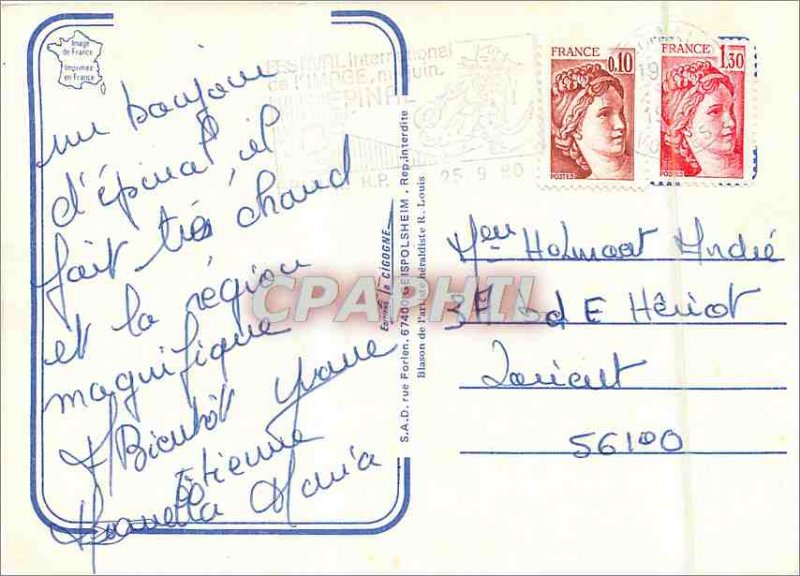 Image
de France
Imprimée
en France
un bonjour
d'épinal, il
fait très chaud
et la région
magnifique
A Bientôt Yvane
Etienne
Maria
FESTIVAL international
de l'IMAGE
EPINAL
R.P. 25 9 80
FRANCE
0,10
POSTES
FRANCE
1,30
POSTES
S.A.D. rue Forlen. 67400 GEISPOLSHEIM . Rep. interdite
Editions la CIGOGNE
Blason de l'artiste héraldiste R. Louis
CPAPHIL
André
37 bd E Hériot
Lorient
56100